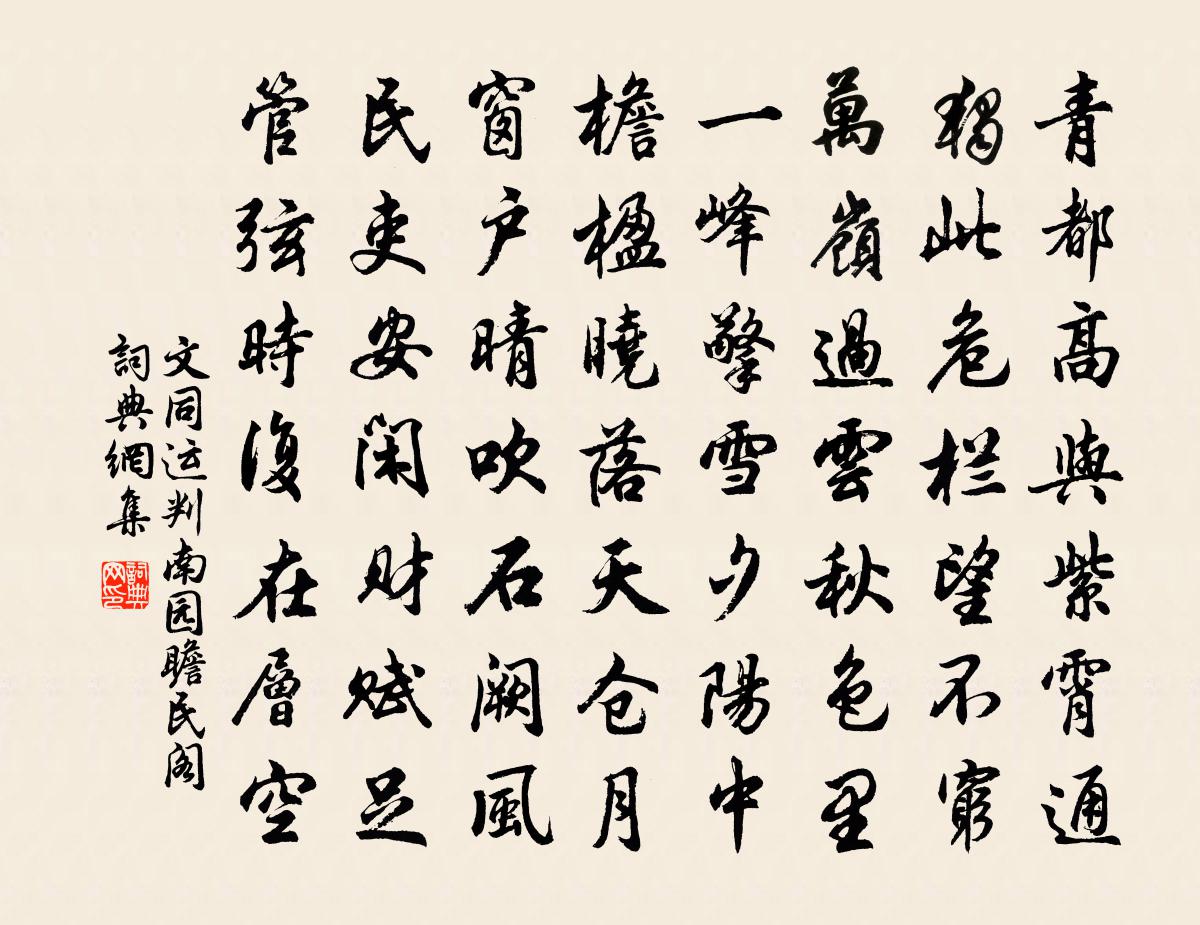 青都高與紫霄通
獨此危栏望不窮
萬嶺過雲秋色里
一峰擎雪夕陽中
檐楹曉落天仓月
窗户晴吹石阙風
民吏安闲财赋足
管弦時復在層空
文同运判南园瞻民阁
詞典網集
詞典网印